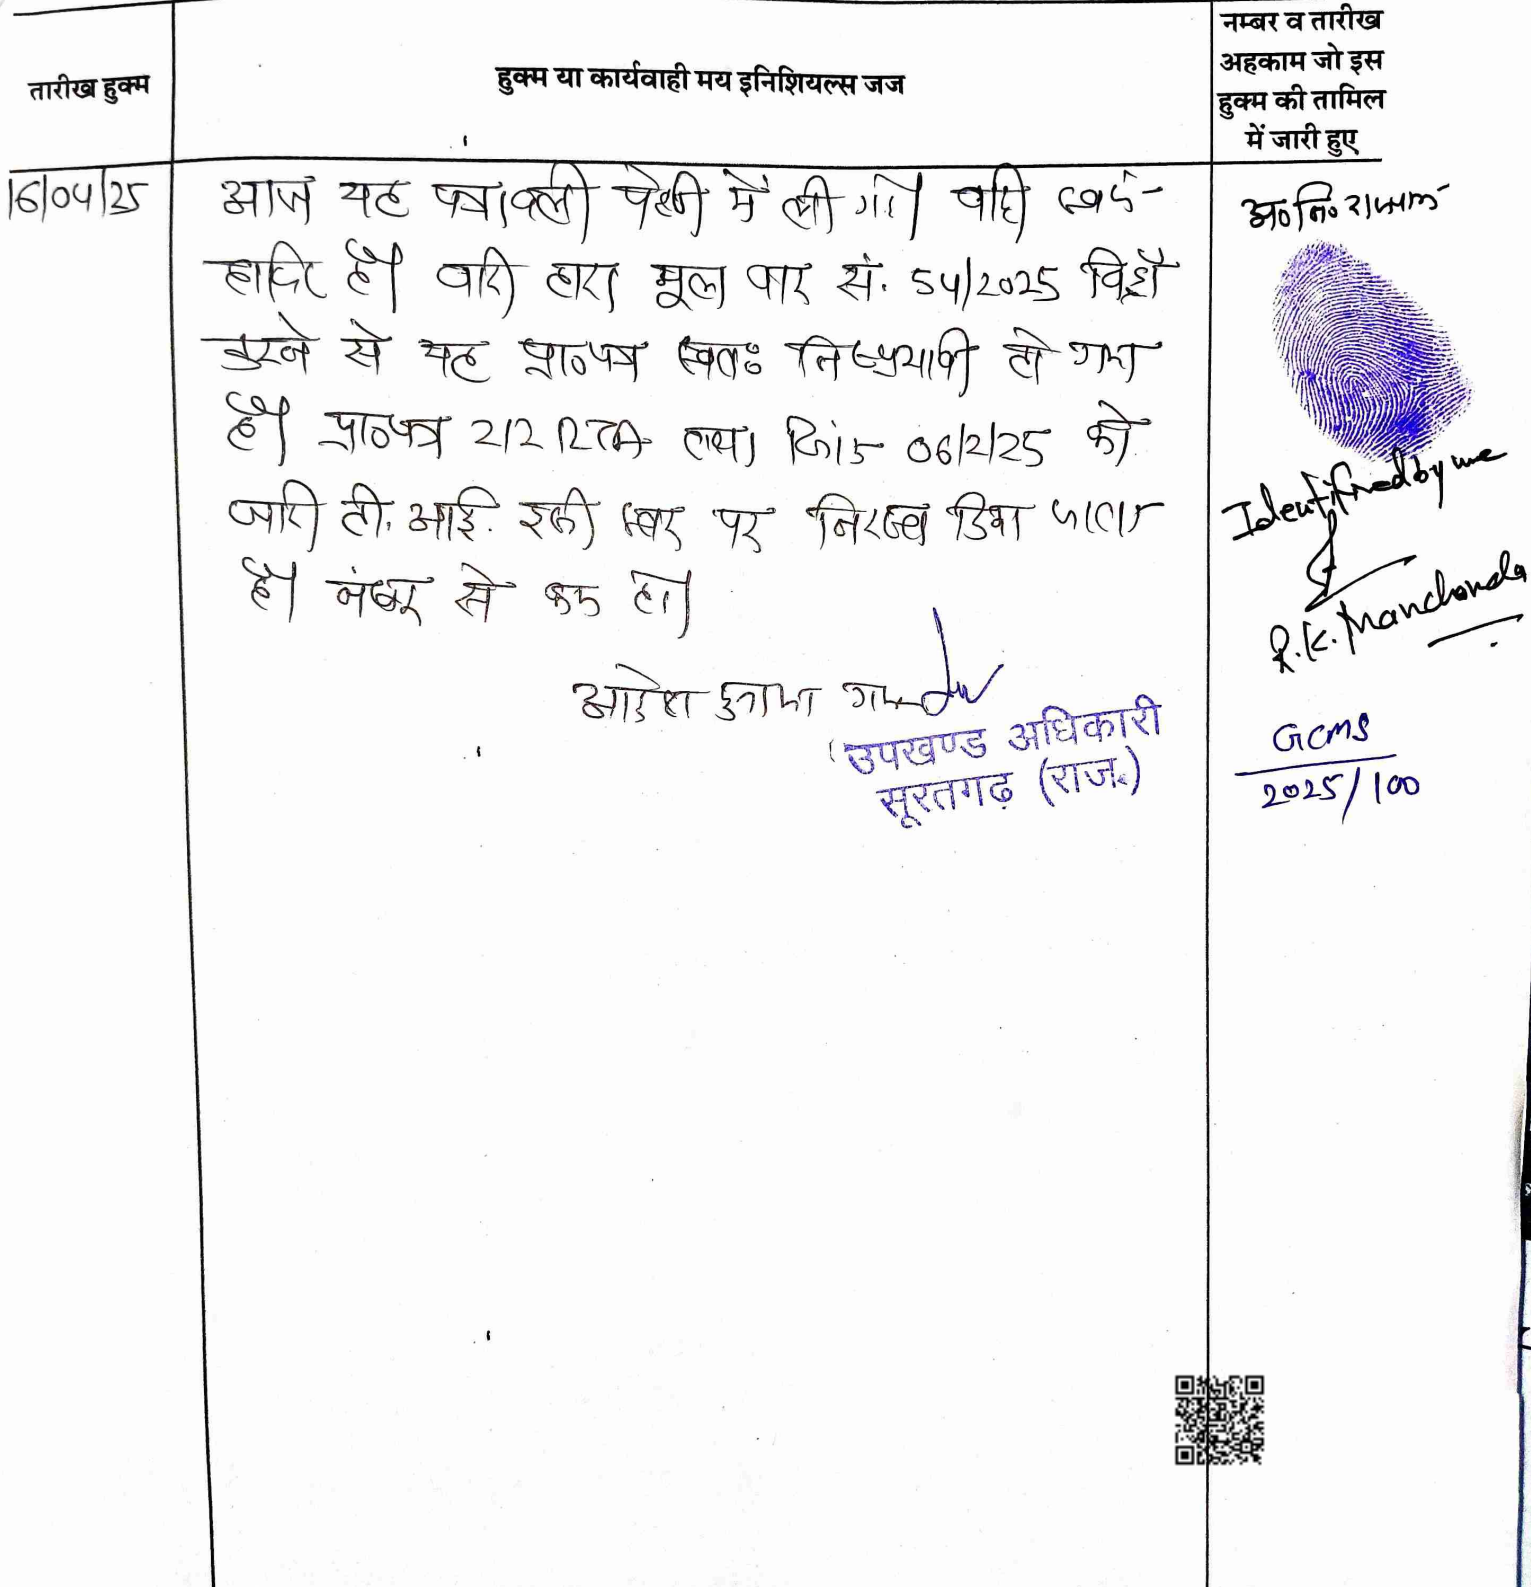 तारीख हुक्म
हुक्म या कार्यवाही मय इनिशियल्स जज
नम्बर व तारीख
अहकाम जो इस
हुक्म की तामिल
में जारी हुए
16/04/25
आज यह पत्रावली पेशी में ली गई। वादी स्वयं
हाजिर है। वादी द्वारा मूल वाद सं. 54/2025 विड्रॉ
करने से यह प्रा०पत्र स्वतः निष्प्रभावी हो गया
है। प्रा०पत्र 212 RTA तथा दिनांक 06/2/25 को
जारी टी. आई. इसी स्तर पर निरस्त किया जाता
है। नंबर से कम हो।
आदेश सुनाया गया
उपखण्ड अधिकारी
सूरतगढ़ (राज.)
अ० नि०
Identified by me
R.K. Manchanda
GCMS
2025/100